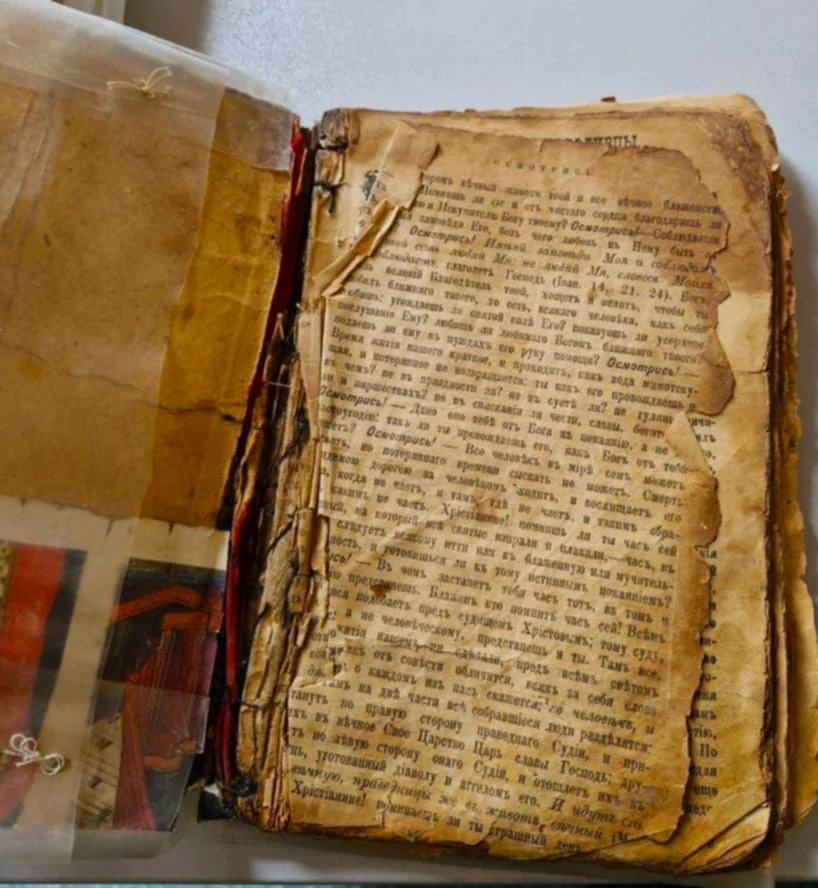 ОСМОТРИСЬ
вѣчный животъ твой и все вѣчное блаженство
Помнишь ли сіе и отъ чистаго сердца благодаришь ли
и Искупителю Богу твоему? Осмотрись! — Соблюдаешь
заповѣди Его, безъ чего любовь къ Нему быть
Осмотрись! Имѣяй заповѣди Моя и соблюдаяй
есть любяй Мя; не любяй Мя, словесъ Моихъ
глаголетъ Господь (Іоан. 14, 21. 24). Богъ,
великій Благодѣтель твой, хощетъ и велитъ, чтобы ты
ближняго твоего, то есть, всякаго человѣка, какъ себя
угождаешь ли святой волѣ Его? показуешь ли усердное
послушаніе Ему? любишь ли любимаго Богомъ ближняго твоего?
подаешь ли ему въ нуждахъ его руку помощи? Осмотрись! —
Время житія нашего краткое, и проходитъ, какъ вода мимотеку-
щая, и потерянное не возвращается: ты какъ его провождаешь и
въ чемъ? не въ праздности ли? не въ суетѣ ли? не
ли и пиршествахъ? не въ снисканіи ли чести, славы,
Осмотрись! — Дано оно тебѣ отъ Бога къ покаянію, а не
такъ ли ты провождаешь его, какъ Богъ отъ тебе
Осмотрись! — Все человѣкъ въ мірѣ семъ можетъ
но потеряннаго времени сыскать не можетъ. Смерть
дорогою за человѣкомъ ходитъ, и восхищаетъ его
когда не чаетъ, и тамъ, гдѣ не чаетъ, и такимъ обра-
какимъ не чаетъ. Христіанине! помнишь ли ты часъ сей
на который всѣ святые взирали и плакали, — часъ, въ
слѣдуетъ всякому итти или въ блаженную или мучитель-
и готовишься ли къ тому истиннымъ покаяніемъ?
Въ чемъ застанетъ тебя часъ тотъ, въ томъ и
предстанешь. Блаженъ кто помнитъ часъ сей! Всѣмъ
подобаетъ предъ судищемъ Христовымъ; тому суду,
а не человѣческому, предстанешь и ты. Тамъ все,
житіи нашемъ ни сдѣлали, предъ всѣмъ свѣтомъ
отъ совѣсти обличится, всякъ за себя слово
о каждомъ изъ насъ скажется: се человѣкъ, и
на двѣ части всѣ собравшіеся люди раздѣлятся:
по правую сторону праведнаго Судіи, и при-
въ вѣчное Свое Царство Царь славы Господь; дру-
по лѣвую сторону онаго Судіи, и отошлетъ ихъ въ
уготованный діаволу и аггеломъ его. И идутъ сіи
праведницы же въ животъ вѣчный
Христіанине! помнишь ли ты страшный день